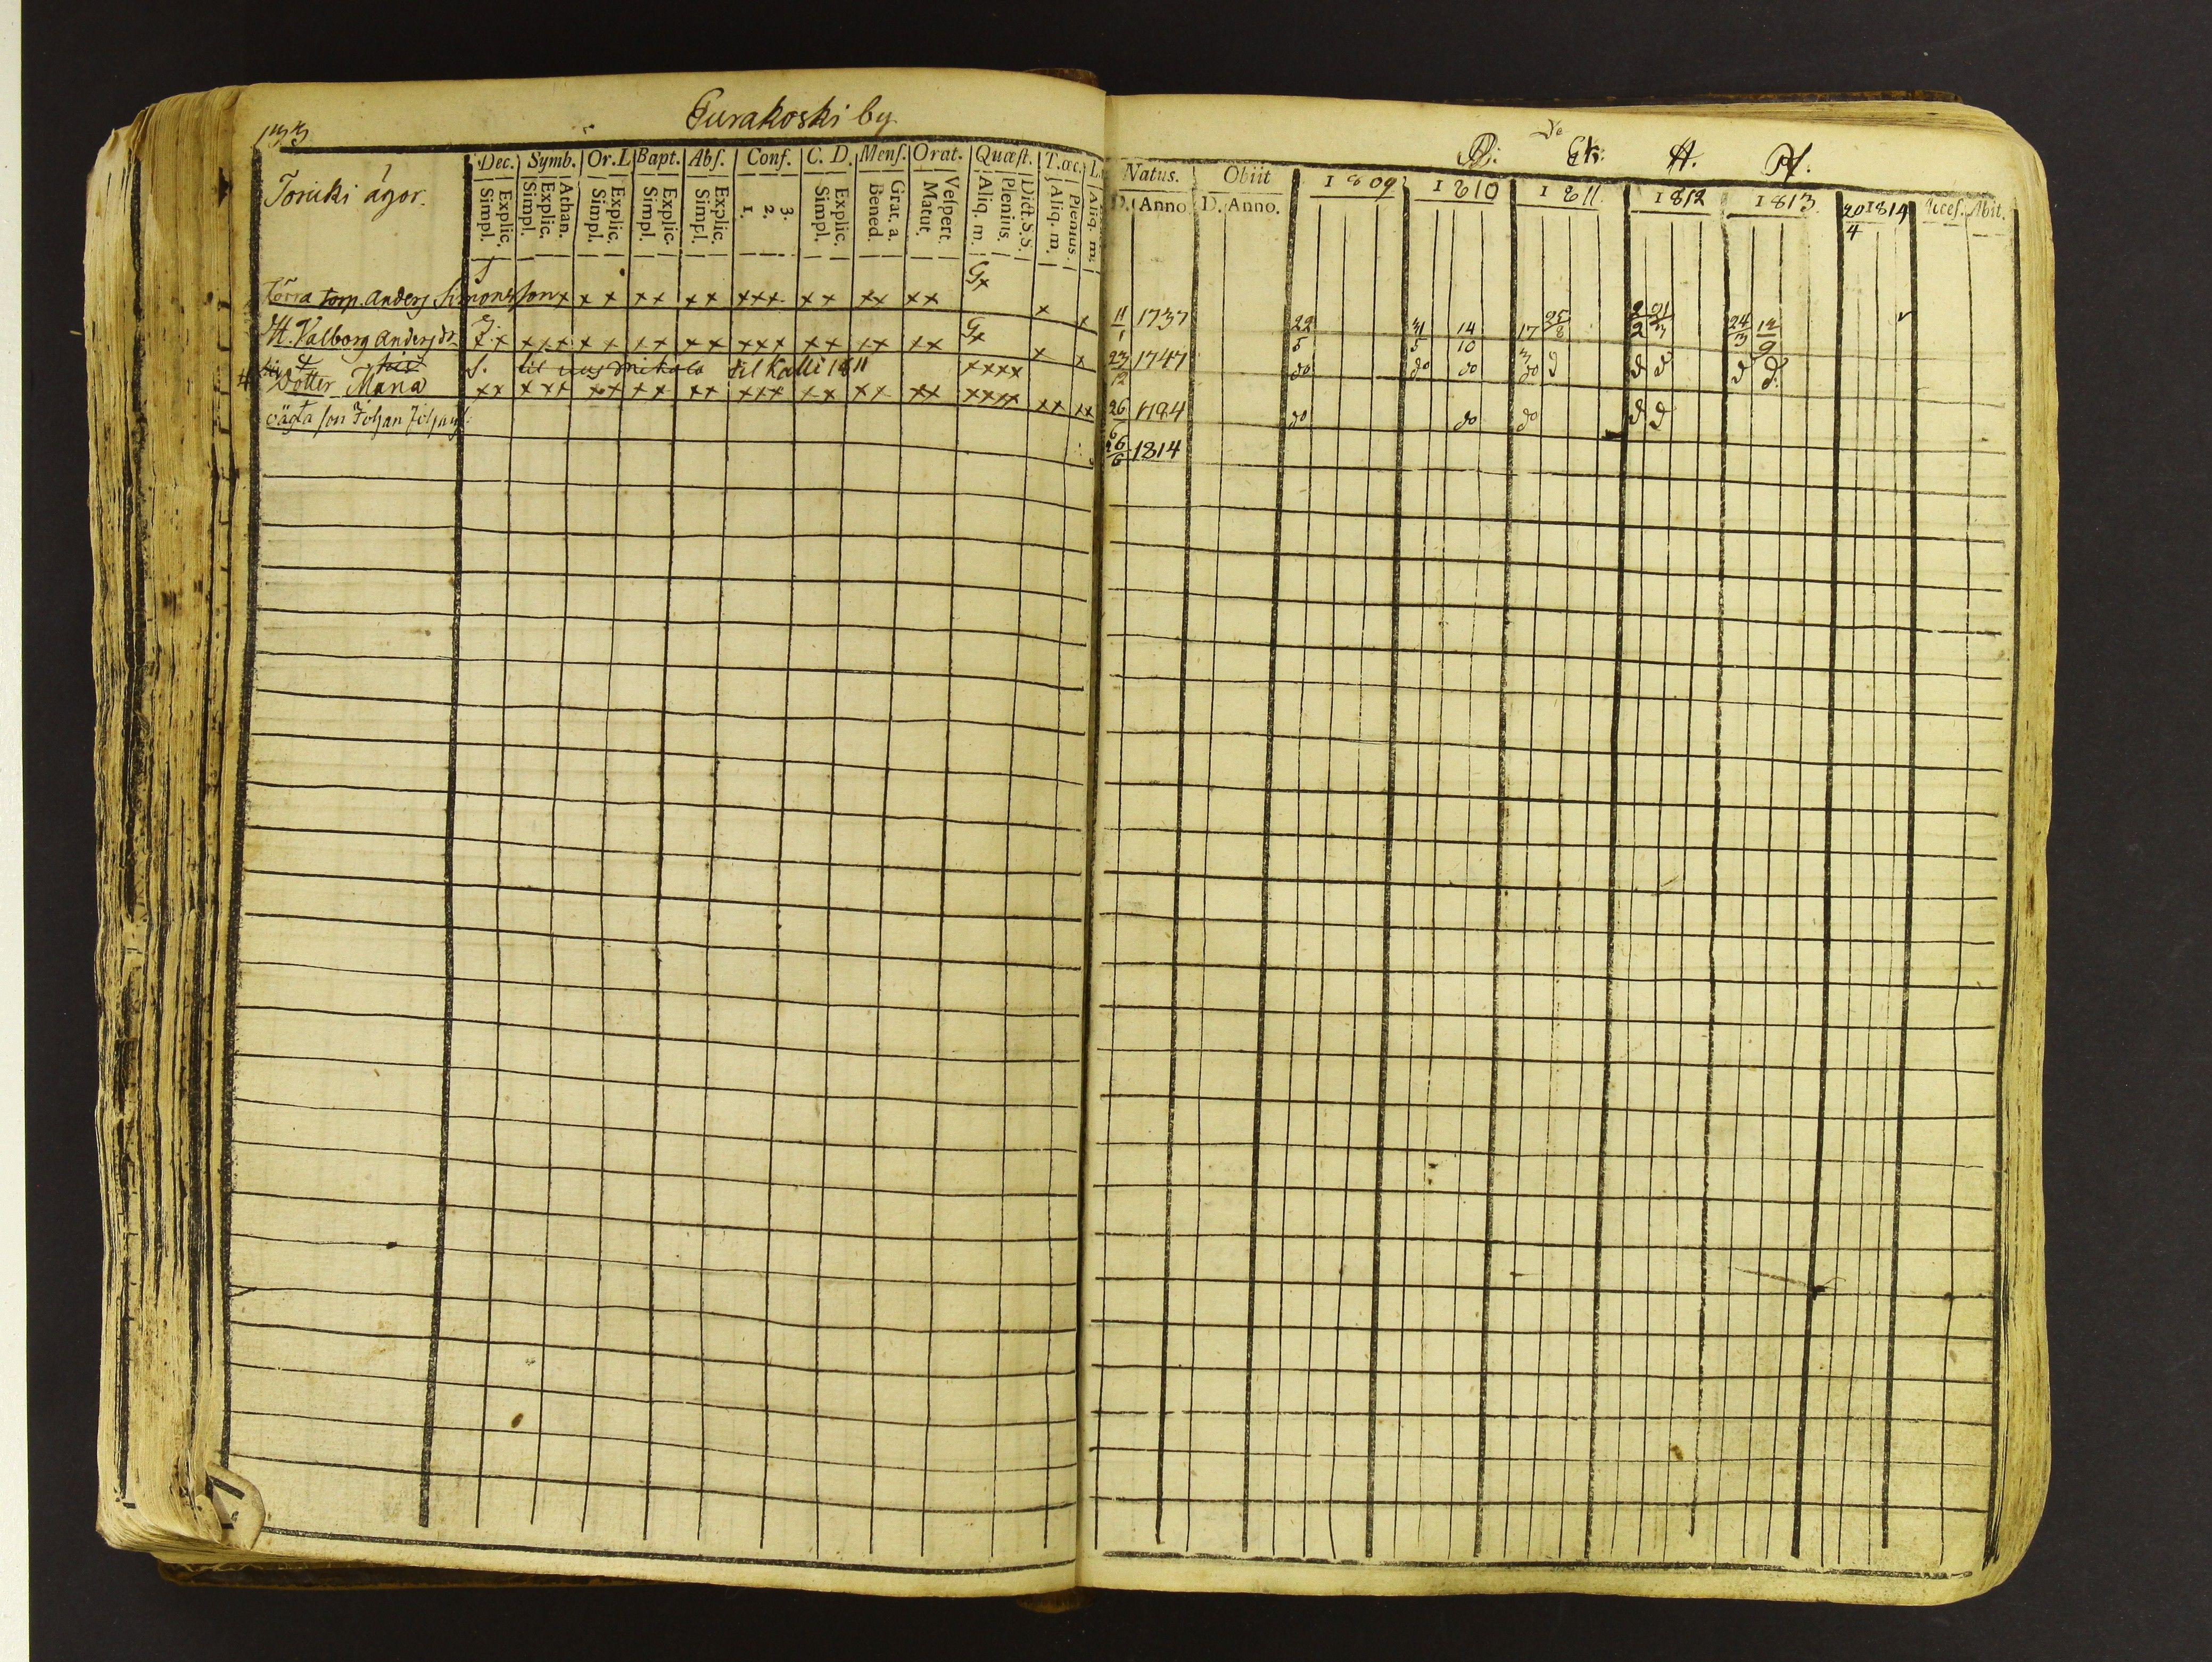 133 Turakoski by
Toricki ägor.
Dec. Symb. Or. L Bapt. Abſ. Conf. C. D. Menſ. Orat. Quæſt. T. œc. L.
Simpl. Explic. Simpl. Explic. Athan. Simpl. Explic. Simpl. Explic. Simpl. Explic. 1. 2. 3. Simpl. Explic. Bened. Grat. a. Matut. Veſpert. Aliq. m. Plenius. Dict. S. S. Aliq. m. Plenius. Aliq. m.
torp. Anders Simonsson x x x x x x x x x x x x x x x x Gx x x
H. Valborg Andersdr x x x x x x x x x x x x x x x x x x x Gx x x
S. til Kalli 1811 xxxx
Dotter Maria xx x xx xx xx xx xxx xx xx xx xxxx xx xx
oägta son Johan
D: Ek: A. Pf:
Natus. Obiit 1809 1810 1811. 1812 1813. 1814 Acceſ. Abit.
D. Anno D. Anno. 20/4
11/1 1737 22/5 31/5 14/10 17/3 25/8 2/2 21/3 24/3 12/9
23/12 1747 do do do do d d d d d
26 1784 do do do d d
26/6 1814